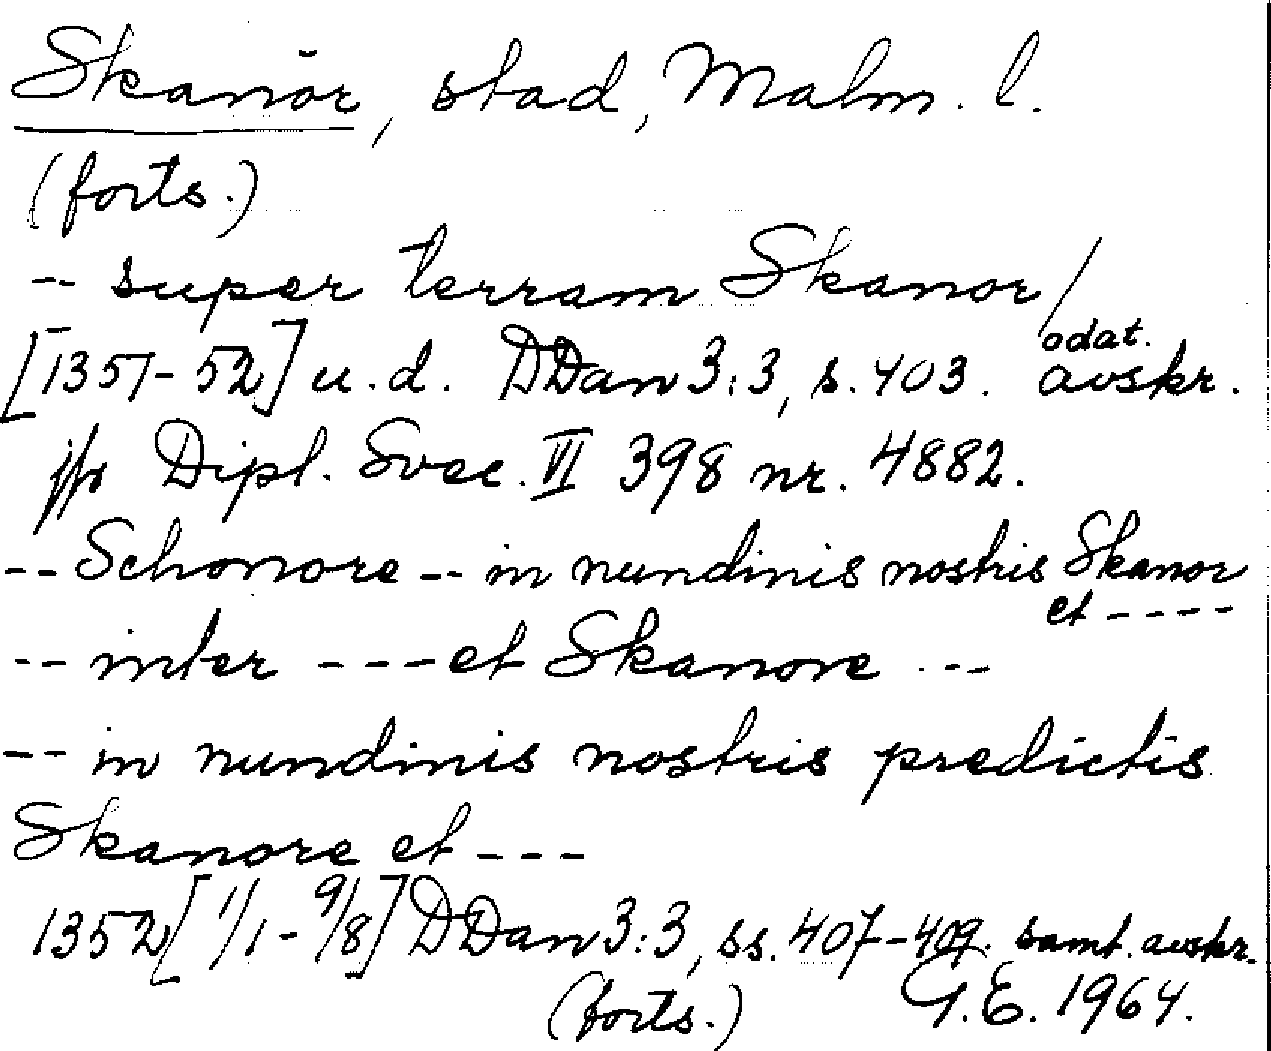 Skanör, stad, Malm. l.
(forts.)
-- super terram Skanor/
[1351-52] u.d. DDan 3:3, s. 403. odat. avskr.
jfr Dipl. Svec. VI 398 nr. 4882.
-- Schonore -- in nundinis nostris Skanor
et ----
-- inter --- et Skanore ---
-- in nundinis nostris predictis
Skanore et ---
1352 [1/1 - 9/8] DDan 3:3, ss. 407-409. samt. avskr.
(forts.) G.E. 1964.